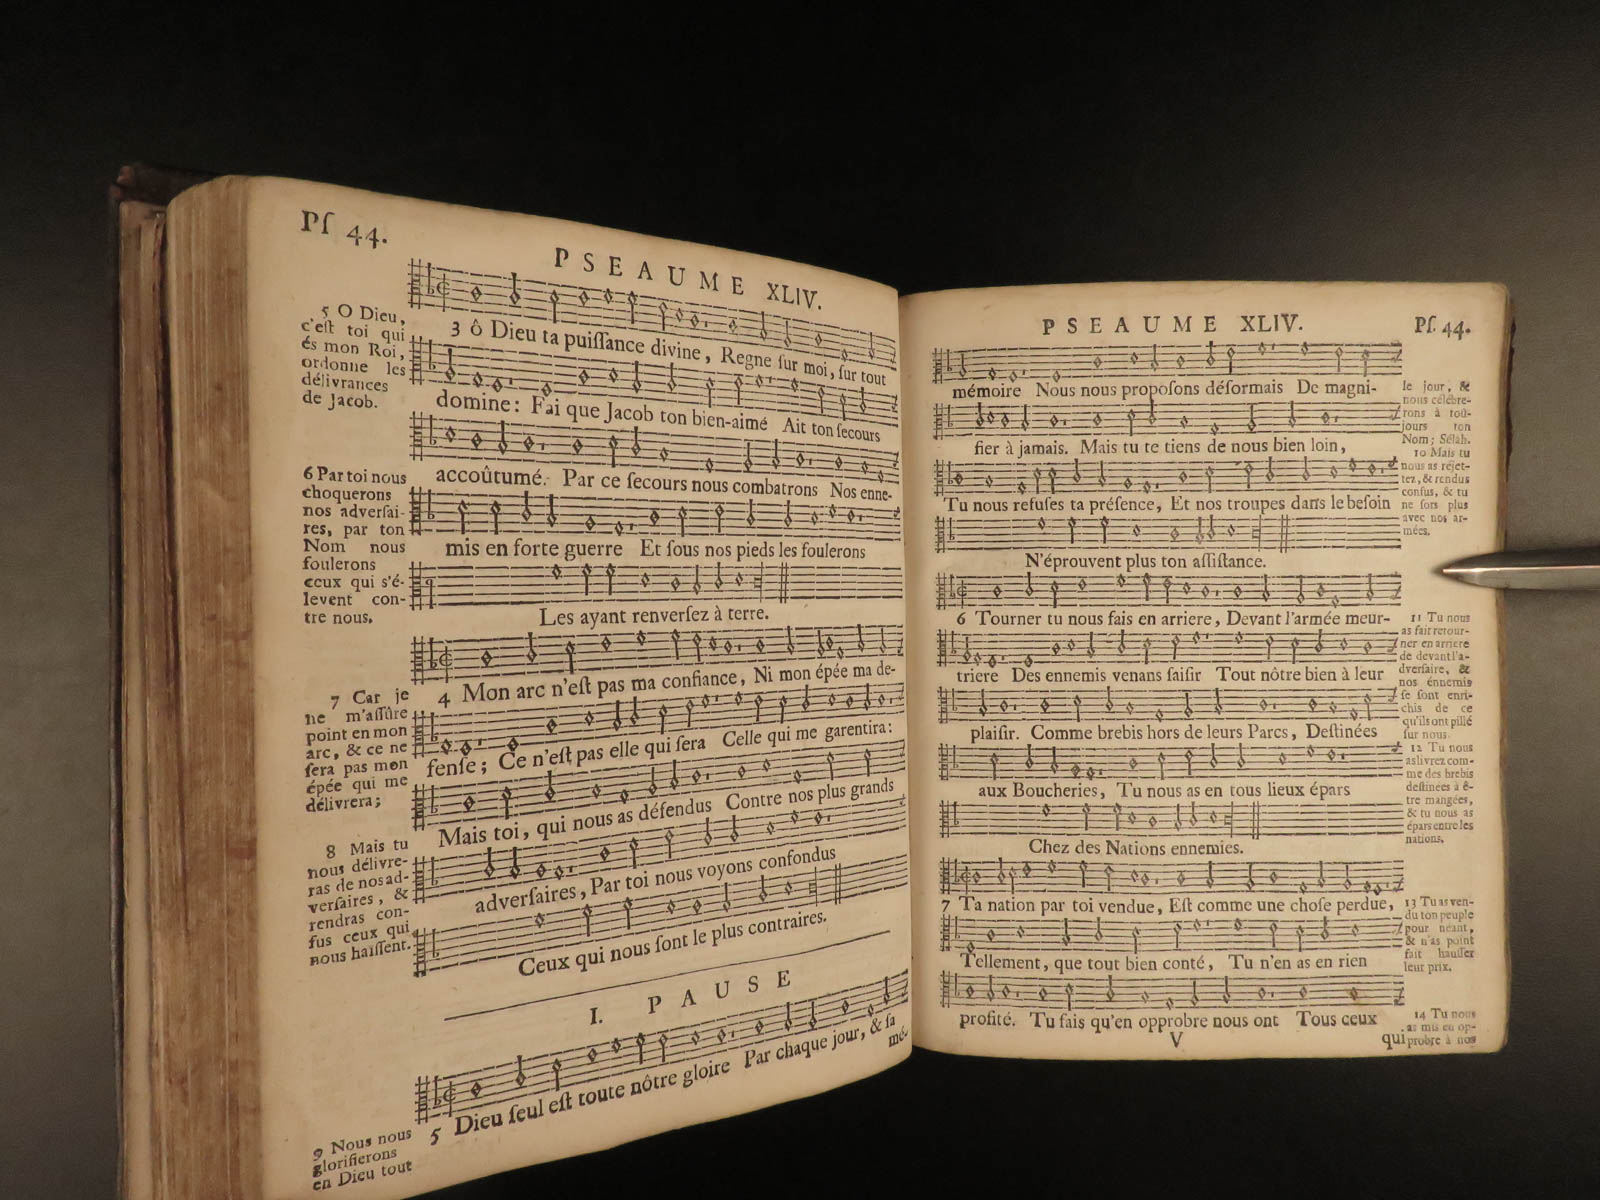 Pſ 44.
PSEAUME XLIV.
5 O Dieu,
c'eſt toi qui
és mon Roi,
ordonne les
délivrances
de Jacob.
3 ô Dieu ta puiſſance divine, Regne ſur moi, ſur tout
domine: Fai que Jacob ton bien-aimé Ait ton ſecours
accoûtumé. Par ce ſecours nous combatrons Nos enne-
mis en forte guerre Et ſous nos pieds les foulerons
Les ayant renverſez à terre.
6 Par toi nous
choquerons
nos adverſai-
res, par ton
Nom nous
foulerons
ceux qui s'é-
levent con-
tre nous.
4 Mon arc n'eſt pas ma confiance, Ni mon épée ma de-
fenſe; Ce n'eſt pas elle qui ſera Celle qui me garentira:
Mais toi, qui nous as défendus Contre nos plus grands
adverſaires, Par toi nous voyons confondus
Ceux qui nous ſont le plus contraires.
7 Car je
ne m'aſſûre
point en mon
arc, & ce ne
ſera pas mon
épée qui me
délivrera;
8 Mais tu
nous délivre-
ras de nos ad-
verſaires, &
rendras con-
fus ceux qui
nous haïſſent.
I. PAUSE
5 Dieu ſeul eſt toute nôtre gloire Par chaque jour, & ſa
mé-
9 Nous nous
glorifierons
en Dieu tout
PSEAUME XLIV.
Pſ. 44.
mémoire Nous nous propoſons déſormais De magni-
fier à jamais. Mais tu te tiens de nous bien loin,
Tu nous refuſes ta préſence, Et nos troupes dans le beſoin
N'éprouvent plus ton aſſiſtance.
le jour, &
nous célébre-
rons à toû-
jours ton
Nom; Sélah.
10 Mais tu
nous as réjet-
tez, & rendus
confus, & tu
ne ſors plus
avec nos ar-
mées.
6 Tourner tu nous fais en arriere, Devant l'armée meur-
triere Des ennemis venans ſaiſir Tout nôtre bien à leur
plaiſir. Comme brebis hors de leurs Parcs, Deſtinées
aux Boucheries, Tu nous as en tous lieux épars
Chez des Nations ennemies.
11 Tu nous
as fait retour-
ner en arriere
de devant l'a-
dverſaire, &
nos énnemis
ſe ſont enri-
chis de ce
qu'ils ont pillé
ſur nous.
12 Tu nous
as livrez com-
me des brebis
deſtinées à ê-
tre mangées,
& tu nous as
épars entre les
nations.
7 Ta nation par toi vendue, Eſt comme une choſe perdue,
Tellement, que tout bien conté, Tu n'en as en rien
profité. Tu fais qu'en opprobre nous ont Tous ceux
V
qui
13 Tu as ven-
du ton peuple
pour neant,
& n'as point
fait hauſſer
leur prix.
14 Tu nous
as mis en op-
probre à nos